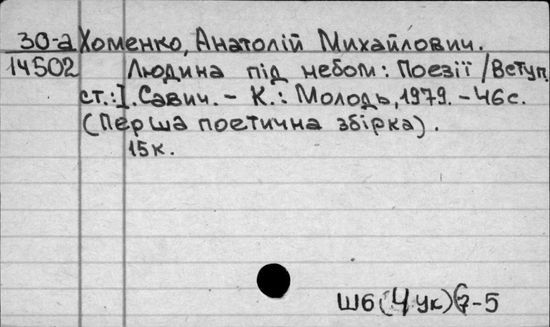 30-а Хоменко, Анатолій Михайлович.
14502 Людина під небом: Поезії / Вступ.
ст.: І. Савич. - К.: Молодь, 1979. - 46с.
(Перша поетична збірка).
15к.
Ш6(4Ук)6-5